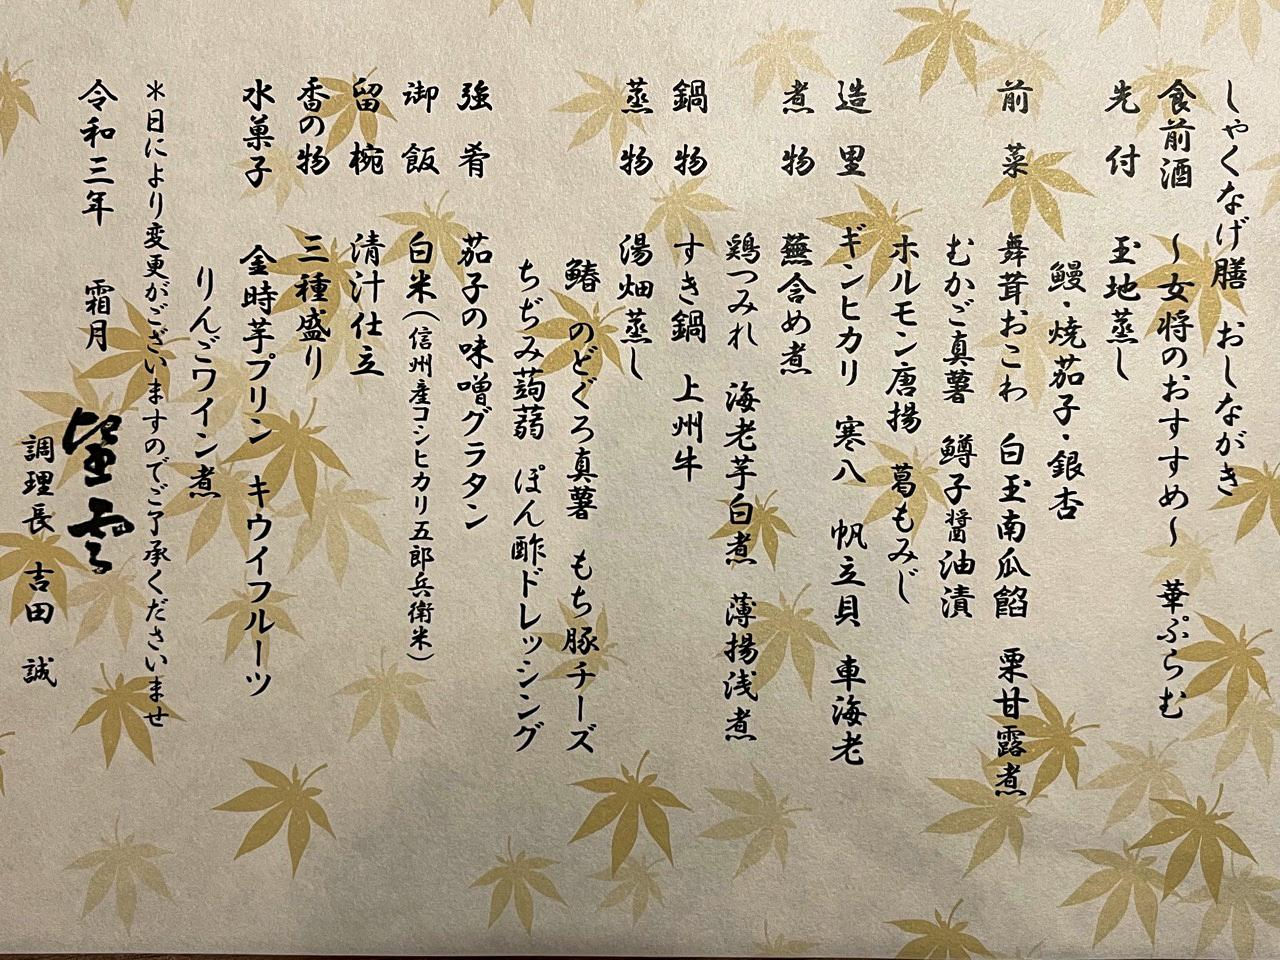 しゃくなげ膳 おしながき
食前酒 〜女将のおすすめ〜 華ぷらむ
先付 玉地蒸し
鰻・焼茄子・銀杏
前菜 舞茸おこわ 白玉南瓜餡 栗甘露煮
むかご真薯 鱒子醤油漬
ホルモン唐揚 葛もみじ
造里 ギンヒカリ 寒八 帆立貝 車海老
煮物 蕪含め煮
鶏つみれ 海老芋白煮 薄揚浅煮
鍋物 すき鍋 上州牛
蒸物 湯畑蒸し
鰆 のどぐろ真薯 もち豚チーズ
ちぢみ蒟蒻 ぽん酢ドレッシング
強肴 茄子の味噌グラタン
御飯 白米(信州産コシヒカリ五郎兵衛米)
留椀 清汁仕立
香の物 三種盛り
水菓子 金時芋プリン キウイフルーツ
りんごワイン煮
＊日により変更がございますのでご了承くださいませ
令和三年 霜月
望雲
調理長 吉田 誠